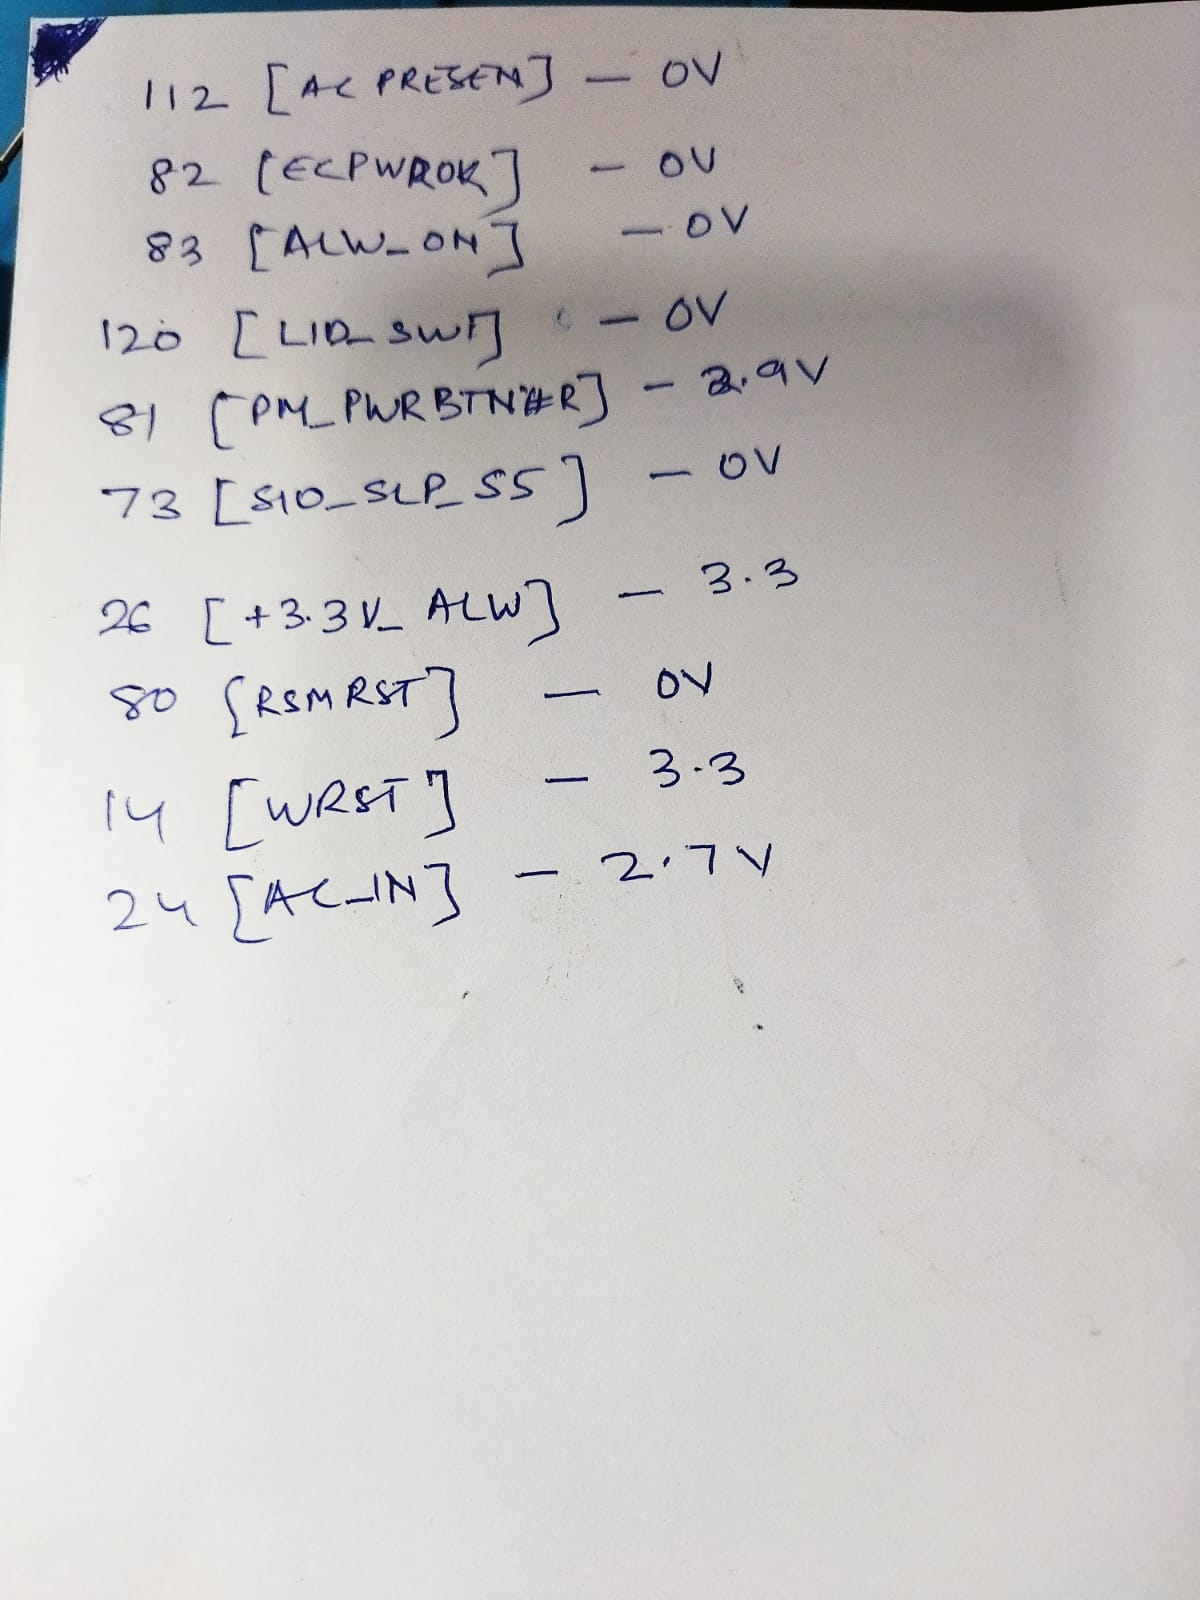 112 [AC PRESEN] - 0V
82 [ECPWROK] - 0V
83 [ALW_ON] - 0V
120 [LID_SW#] - 0V
81 [PM_PWRBTN#R] - 2.9V
73 [SIO_SLP_S5] - 0V
26 [+3.3V_ALW] - 3.3
80 [RSMRST] - 0V
14 [WRST] - 3.3
24 [AC_IN] - 2.7V